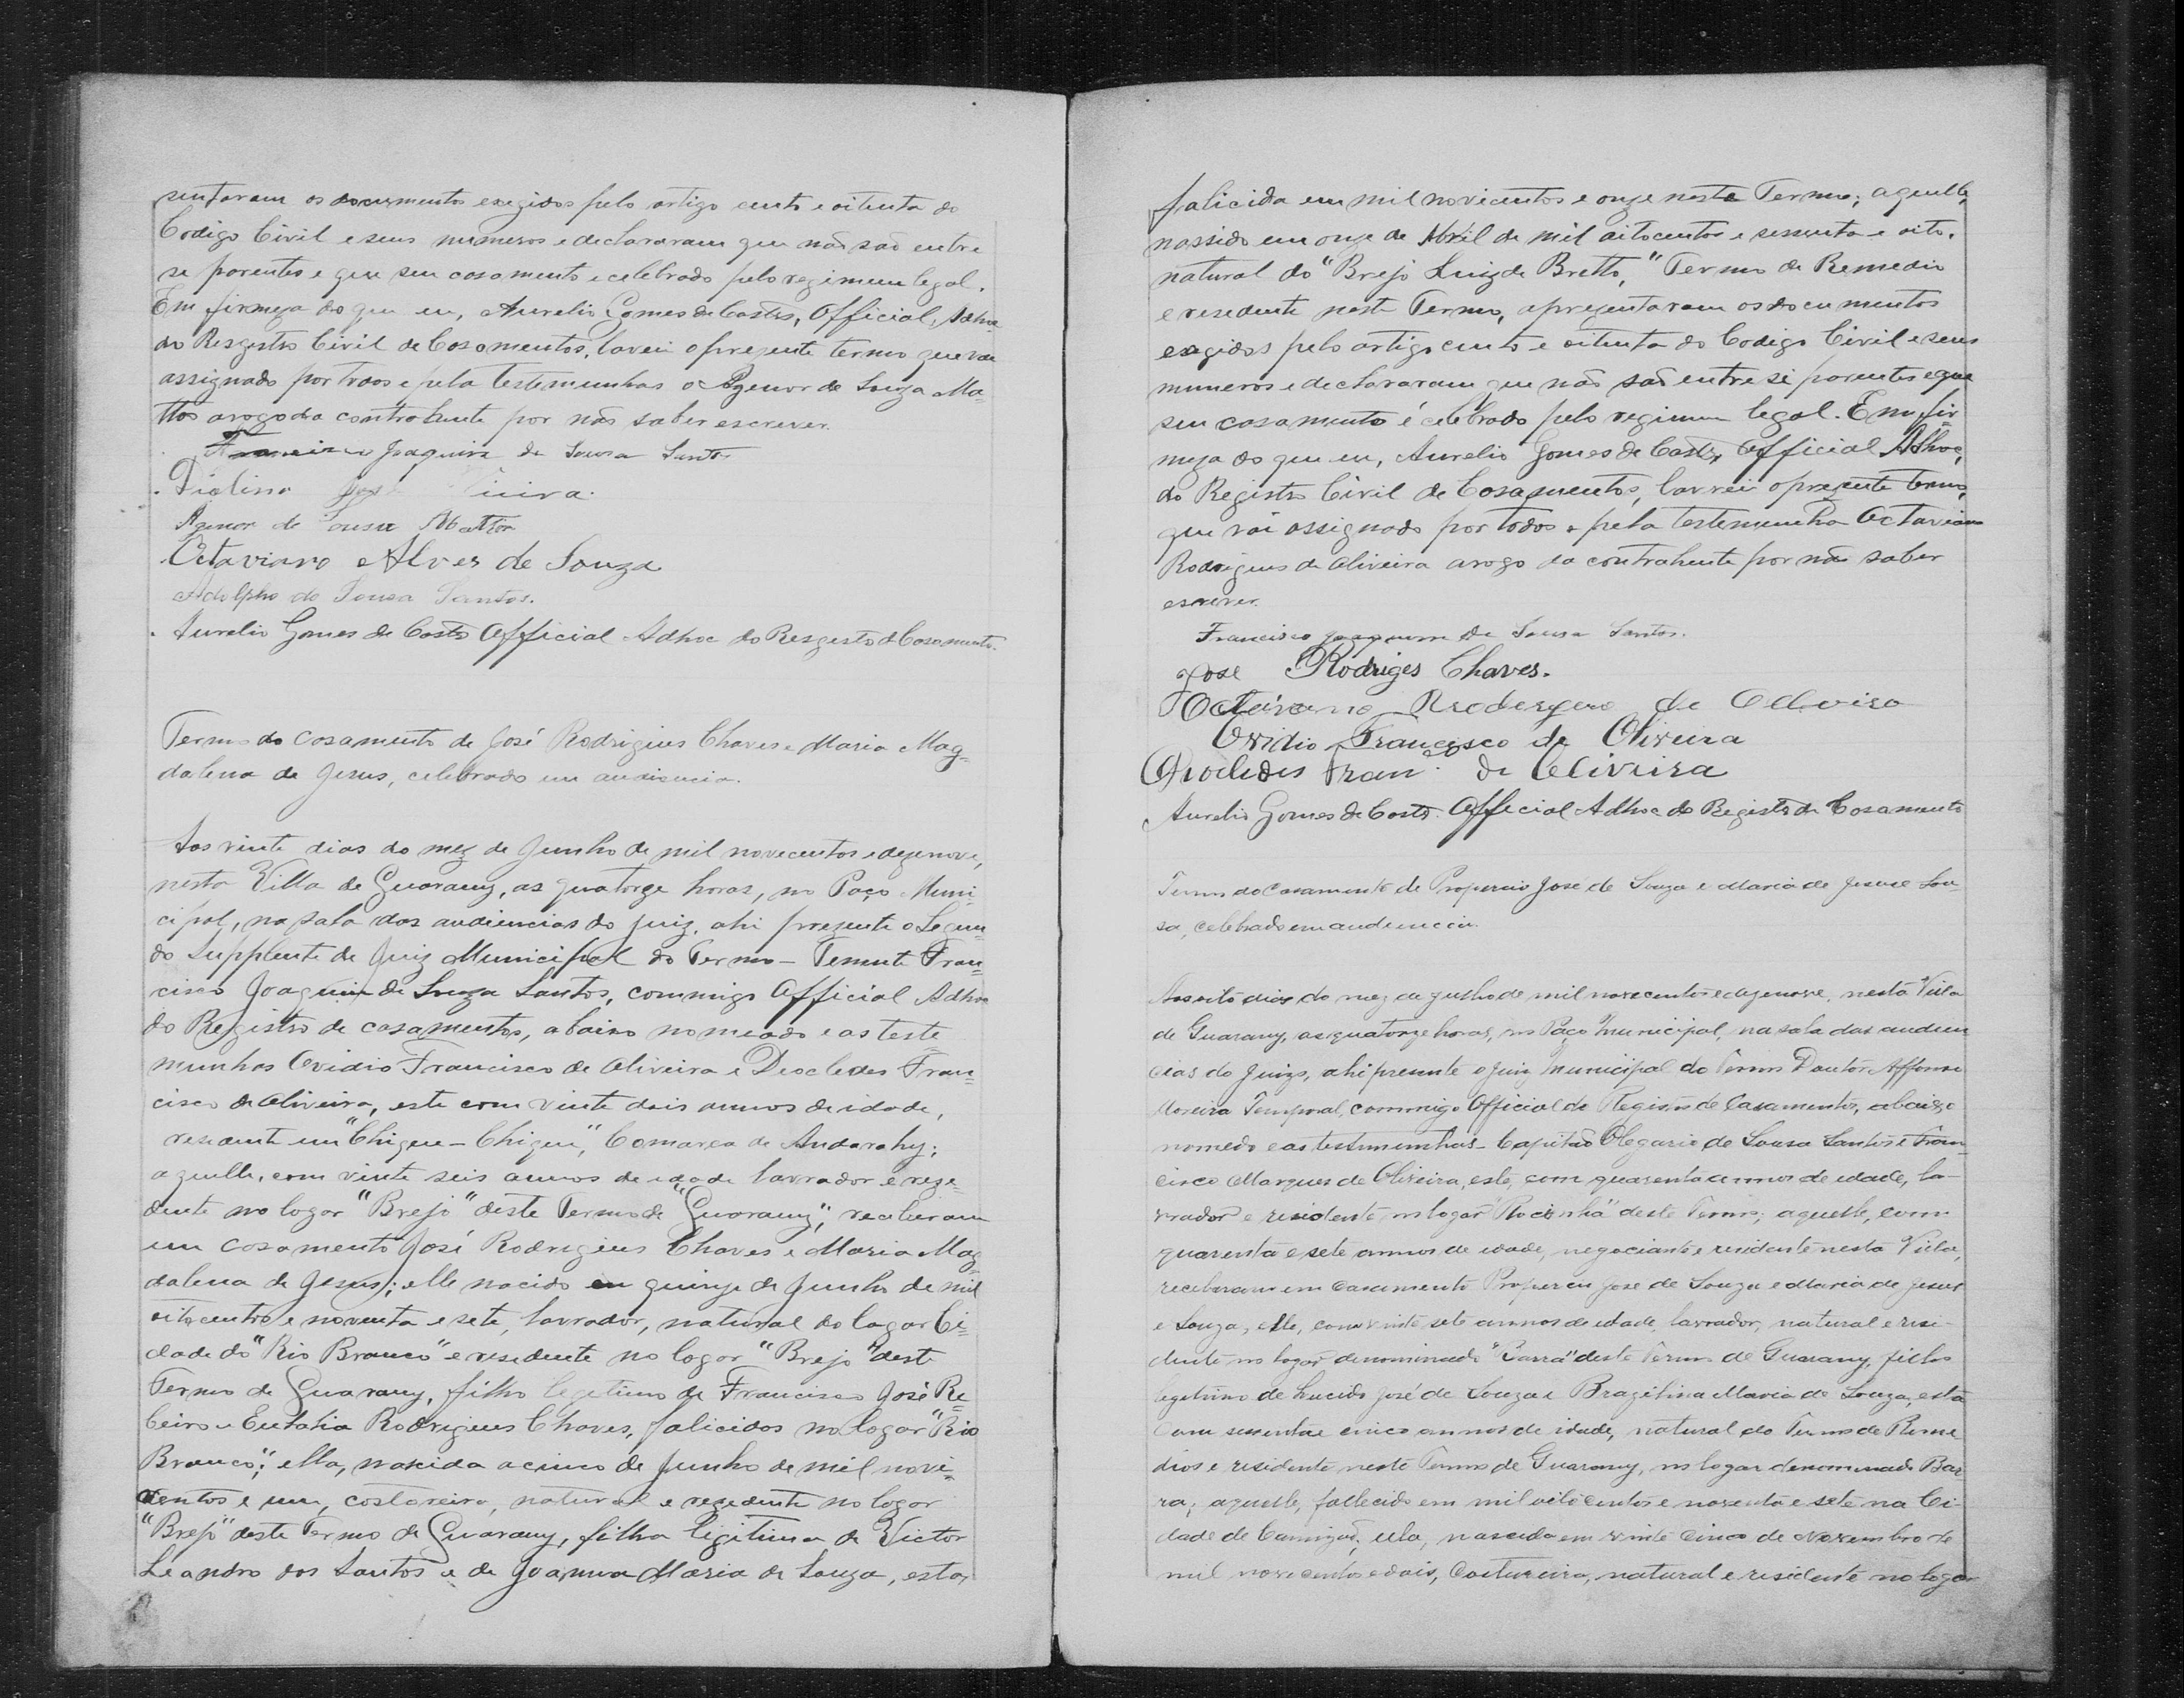 sentaram os documentos exegidos pelo artigo cento e oitenta do
Codigo Civil e seus numeros e declararam que não são entre
se parentes e que seu casamento e celebrado pelo regimem legal.
Em firmeza do que eu, Aurelio Gomes de Castro, Official, Adhoc
do Resgistro Civil de Casamentos, lavrei o prezente termo que vae
assignado por todos e pela testemunhas o Agenor de Souza Ma-
ttos arogo da contrahente por não saber escrever.
Francisco Joaquim de Sousa Santos
Diolino
Agenor de Sousa Mattos
Octaviano Alves de Souza
Adolpho de Sousa Santos.
Aurelio Gomes de Castro Official Adhoc do Resgistro d Casamento.
Termo do casamento de José Rodrigues Chaves e Maria Mag-
dalena de Jesus, celebrado em audiencia.
Aos vinte dias do mez de Junho de mil novecentos e dezenove,
nesta Villa de Guarany, as quatorze horas, no Paço Muni-
cipal, na sala das audiencias do juiz, ahi prezente o Segun-
do Supplente de Juiz Municipal do Termo - Tenente Fran-
cisco Joaquim de Souza Santos, commigo Official Adhoc
do Registro de casamentos, abaixo nomeado e as teste-
munhas Ovidio Francisco de Oliveira e Diocledes Fran-
cisco de Oliveira, este com vinte dois annos de idade,
resedente em "Chique-Chique", Comarca de Andarahy;
aquelle, com vinte seis annos de idade lavrador e reze-
dente no logar "Brejo" deste Termo de "Guarany"; receberam
em casamento José Rodrigues Chaves e Maria Mag-
dalena de Jesus; elle nacido em quinze de Junho de mil
oitocentos e noventa e sete, lavrador, natural do lagar Ci-
dade do "Rio Branco" e resedente no logar "Brejo" deste
Termo de Guarany, filho legetimo de Francisco José Re-
beiro e Eutalia Rodrigues Chaves, falicidos no logar "Rio
Branco"; ella, nascida a cinco de Junho de mil nove-
centos e um, costoreira, natural e rezedente no logar
"Brejo" deste Termo de Guarany, filha legitima de Victor
Leandro dos Santos e de Joanna Maria de Souza, esta,
falicida em mil novicentos e onze neste Termo; aquelle,
nassido em onze de Abril de mil oitocentos e sessenta e oito,
natural do "Brejo Luiz de Britto," Termo de Remedio
e resedente neste Termo, aprezentaram os documentos
exegidos pelo artigo cento e oitenta do Codigo Civil e seus
numeros e declararam que não são entre si parentes e que
seu casamento é celebrado pelo regimem legal. Em fir-
meza do que eu, Aurelio Gomes de Castro, Official Adhoc,
do Registro Civil de Casamentos, lavrei o prezente termo,
que vai assignado por todos e pela testemunha Octaviano
Rodrigues de Oliveira arogo da contrahente por não saber
escrever.
Francisco Joaquim de Sousa Santos.
José Rodriges Chaves.
Octaviano de
Ovidio Francisco de Oliveira
Diocledes Fran.co de Oliveira
Aurelio Gomes de Castro. Official Adhoc do Registro de Casamento
Termo do Casamento de Propercio José de Souza e Maria de Jesus e Sou-
sa, celebrado em audiencia.
Aos oito dias do mez de Julho de mil novecentos e dezenove, nesta Villa
de Guarany, as quatorze horas, no Paço Municipal, na sala das audien-
cias do Juizo, ahi presente o Juiz Municipal do Termo Doutor Affonso
Moreira Temporal, commigo Official do Registro de Casamentos, abaixo
nomedo e as testemunhas - Capitão Olegario de Sousa Santos e Fran-
cisco Marques de Oliveira, este, com quarenta annos de idade, la-
vrador e residente no logar "Rocinha" deste Termo; aquelle, com
quarenta e sete annos de idade, negociante e residente nesta Villa,
receberam em Casamento Propercio José de Souza e Maria de Jesus
e Souza, elle, com vinte sete annos de idade, lavrador, natural e resi-
dente no logar denominado "Barra" deste Termo de Guarany, filho
legitimo de Lucido José de Souza e Brazilina Maria de Souza, esta
com sessenta e cinco annos de idade, natural do Termo de Reme-
dios e residente neste Termo de Guarany, no logar denominado Bar-
ra; aquelle, fallecido em mil oito centos e noventa e sete na Ci-
dade de ella, nascida em vinte cinco de Novembro de
mil novecentos e dois, Costureira, natural e residente no logar